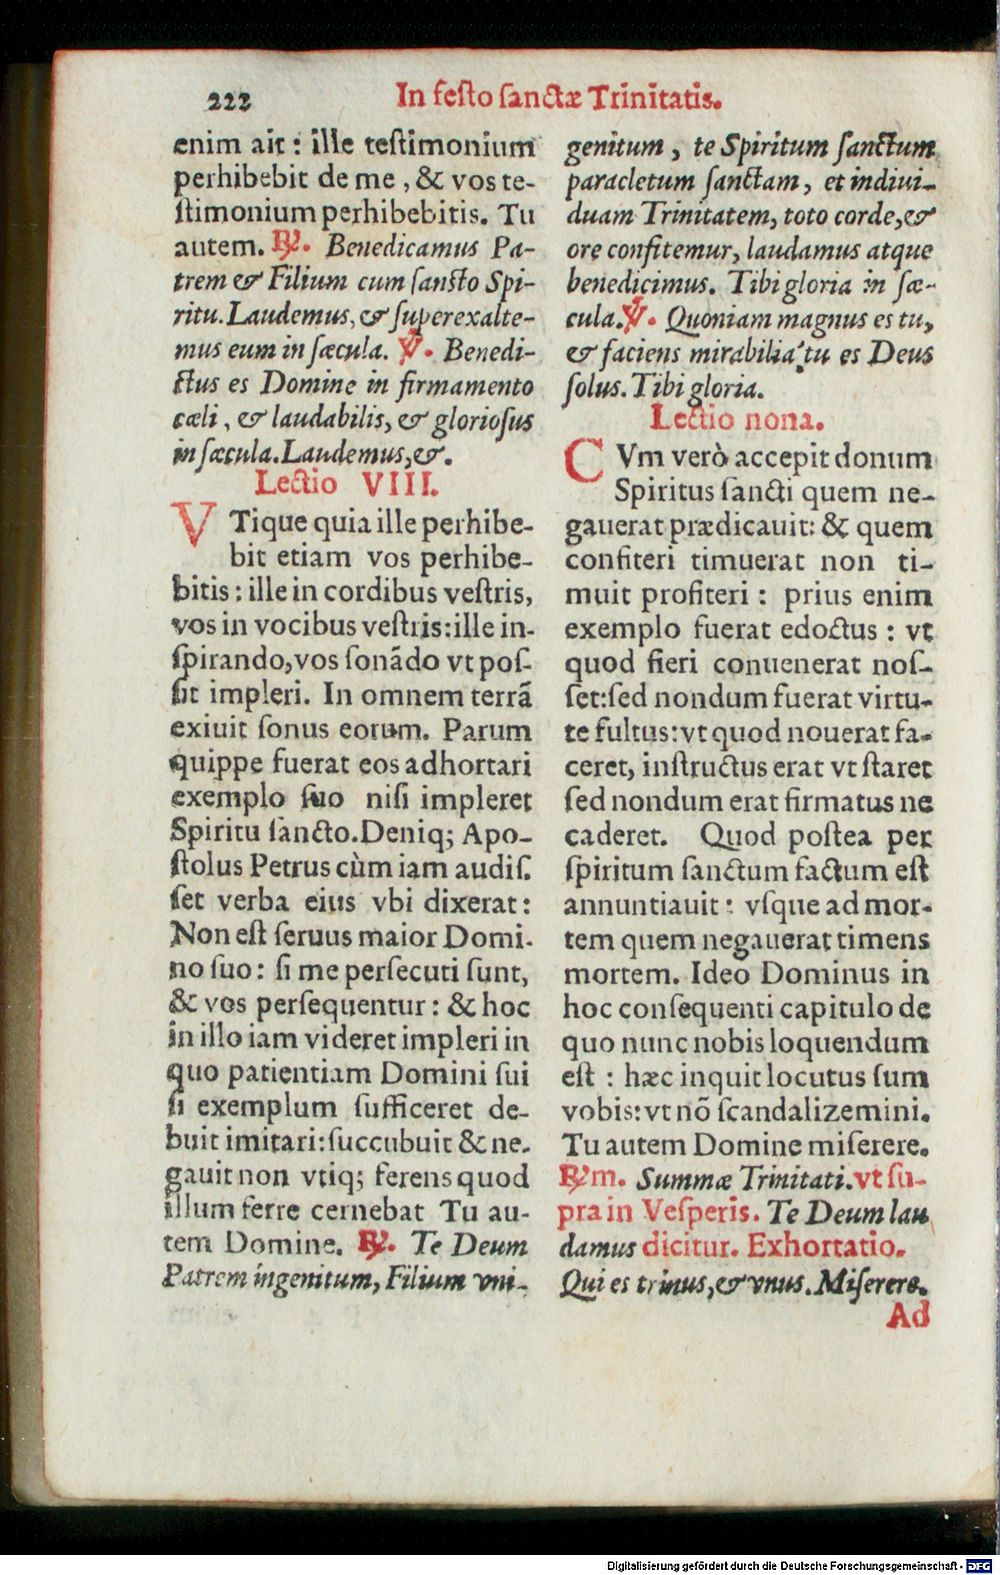 222 In feſto ſanctæ Trinitatis.
enim ait : ille teſtimonium
perhibebit de me , & vos te-
ſtimonium perhibebitis. Tu
autem. ℟. Benedicamus Pa-
trem & Filium cum ſancto Spi-
ritu. Laudemus, & ſuperexalte-
mus eum in ſæcula. ℣. Benedi-
ctus es Domine in firmamento
cæli , & laudabilis, & glorioſus
in ſæcula. Laudemus, &.
Lectio VIII.
VTique quia ille perhibe-
bit etiam vos perhibe-
bitis : ille in cordibus veſtris,
vos in vocibus veſtris: ille in-
ſpirando, vos ſonãdo vt poſ-
ſit impleri. In omnem terrã
exiuit ſonus eorum. Parum
quippe fuerat eos adhortari
exemplo ſuo niſi impleret
Spiritu ſancto. Deniq; Apo-
ſtolus Petrus cùm iam audiſ-
ſet verba eius vbi dixerat :
Non eſt ſeruus maior Domi-
no ſuo : ſi me perſecuti ſunt,
& vos perſequentur : & hoc
in illo iam videret impleri in
quo patientiam Domini ſui
ſi exemplum ſufficeret de-
buit imitari: ſuccubuit & ne-
gauit non vtiq; ferens quod
illum ferre cernebat Tu au-
tem Domine. ℟. Te Deum
Patrem ingenitum, Filium vni-
genitum , te Spiritum ſanctum
paracletum ſanctam, et indiui-
duam Trinitatem, toto corde, &
ore confitemur, laudamus atque
benedicimus. Tibi gloria in ſæ-
cula. ℣. Quoniam magnus es tu,
& faciens mirabilia tu es Deus
ſolus. Tibi gloria.
Lectio nona.
CVm verò accepit donum
Spiritus ſancti quem ne-
gauerat prædicauit: & quem
confiteri timuerat non ti-
muit profiteri : prius enim
exemplo fuerat edoctus : vt
quod fieri conuenerat noſ-
ſet: ſed nondum fuerat virtu-
te fultus: vt quod nouerat fa-
ceret, inſtructus erat vt ſtaret
ſed nondum erat firmatus ne
caderet. Quod poſtea per
ſpiritum ſanctum factum eſt
annuntiauit : vſque ad mor-
tem quem negauerat timens
mortem. Ideo Dominus in
hoc conſequenti capitulo de
quo nunc nobis loquendum
eſt : hæc inquit locutus ſum
vobis: vt nõ ſcandalizemini.
Tu autem Domine miſerere.
℟m. Summæ Trinitati. vt ſu-
pra in Veſperis. Te Deum lau
damus dicitur. Exhortatio.
Qui es trinus, & vnus. Miſerere.
Ad
Digitalisierung gefördert durch die Deutsche Forschungsgemeinschaft - DFG